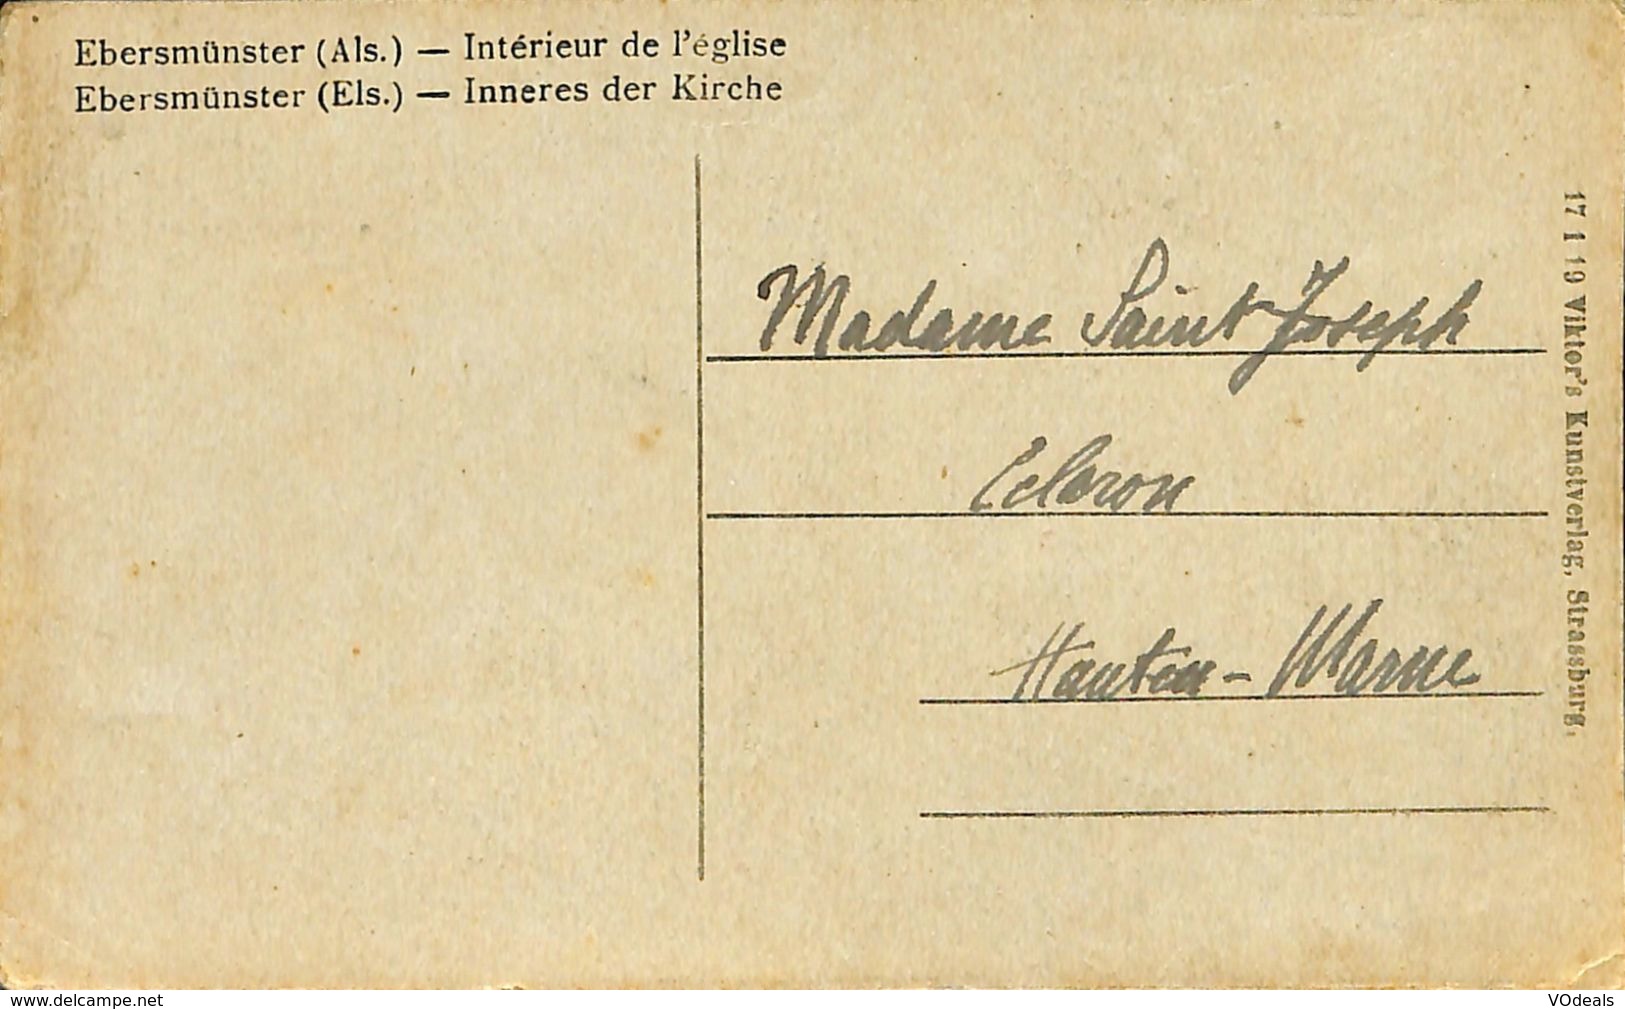 Ebersmünster (Als.) — Intérieur de l'église
Ebersmünster (Els.) — Inneres der Kirche
Madame Saint Joseph
Eclaron
Haute - Marne
17 1 19 Viktor's Kunstverlag, Strassburg.
www.delcampe.net
VOdeals